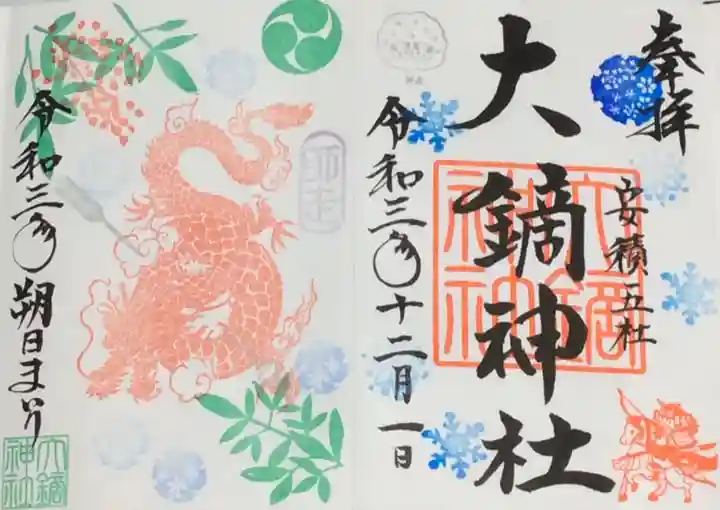 奉拝
安積五社
大鏑神社
大鏑神社
令和三年十二月一日
師走
令和三年 朔日まいり
大鏑神社